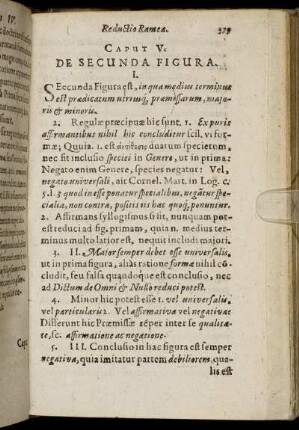 Reductio Ramea.
CAPUT V.
DE SECUNDA FIGURA.
I.
SEcunda Figura est, in qua medius terminus
est prædicatum utriusq; præmissarum, majo-
ris & minoris.
2. Regulæ præcipuæ hîc sunt. 1. Ex puris
affirmantibus nihil hic concluditur scil. vi for-
mæ; Quia. 1. est duarum specierum,
nec fit inclusio speciei in Genere, ut in prima:
Negato enim Genere, species negatur: Vel,
negato universali, ait Cornel. Mart. in Log. c.
5.l.3 quid inesse ponatur specialibus, negatur spe-
cialia, non contra, positis iis hac quoq, ponuntur.
2. Affirmans syllogismus si sit, nunquam pot-
est reduci ad fig. primam, quia n. medius ter-
minus multo latior est, nequit includi majori.
3. II. Major semper debet esse universalis,
ut in prima figura, aliàs ratione formæ nihil cō-
cludit, seu falsa quandoque est conclusio, nec
ad Dictum de Omni & Nullo reduci potest.
4. Minor hic potest esse 1. vel universalis,
vel particularis 2. Vel affirmativa vel negativa
Differunt hic Præmissæ sēper inter se qualita-
te, sc. affirmatione ac negatione.
5. III. Conclusio in hac figura est semper
negativa, quia imitatur partem debiliorem, qua-
lis est